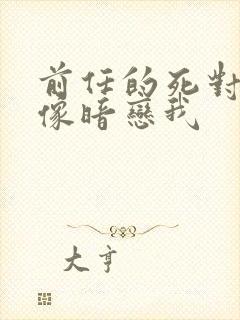 前任的死對
像暗戀我
大亨